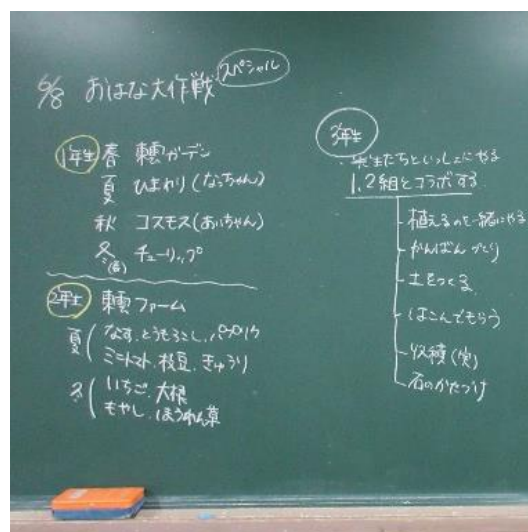 6/8 おはな大作戦 スペシャル
1年生 春 東雲ガーデン
夏 ひまわり(なっちゃん)
秋 コスモス(あいちゃん)
冬(春) チューリップ
2年生 東雲ファーム
夏 なす、とうもろこし、パプリカ
ミニトマト、枝豆、きゅうり
冬 いちご、大根
もやし、ほうれん草
3年生
・先生たちといっしょにやる
1、2組とコラボする
植えるのを一緒にやる
かんばんづくり
土をつくる
はこんでもらう
収穫(実)
石のかたづけ